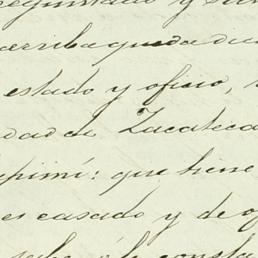 y
arriba queda dic
estado y oficio,
dad de Zacateca
apimí: que tiene
es casado y de of
sabe ó le consta